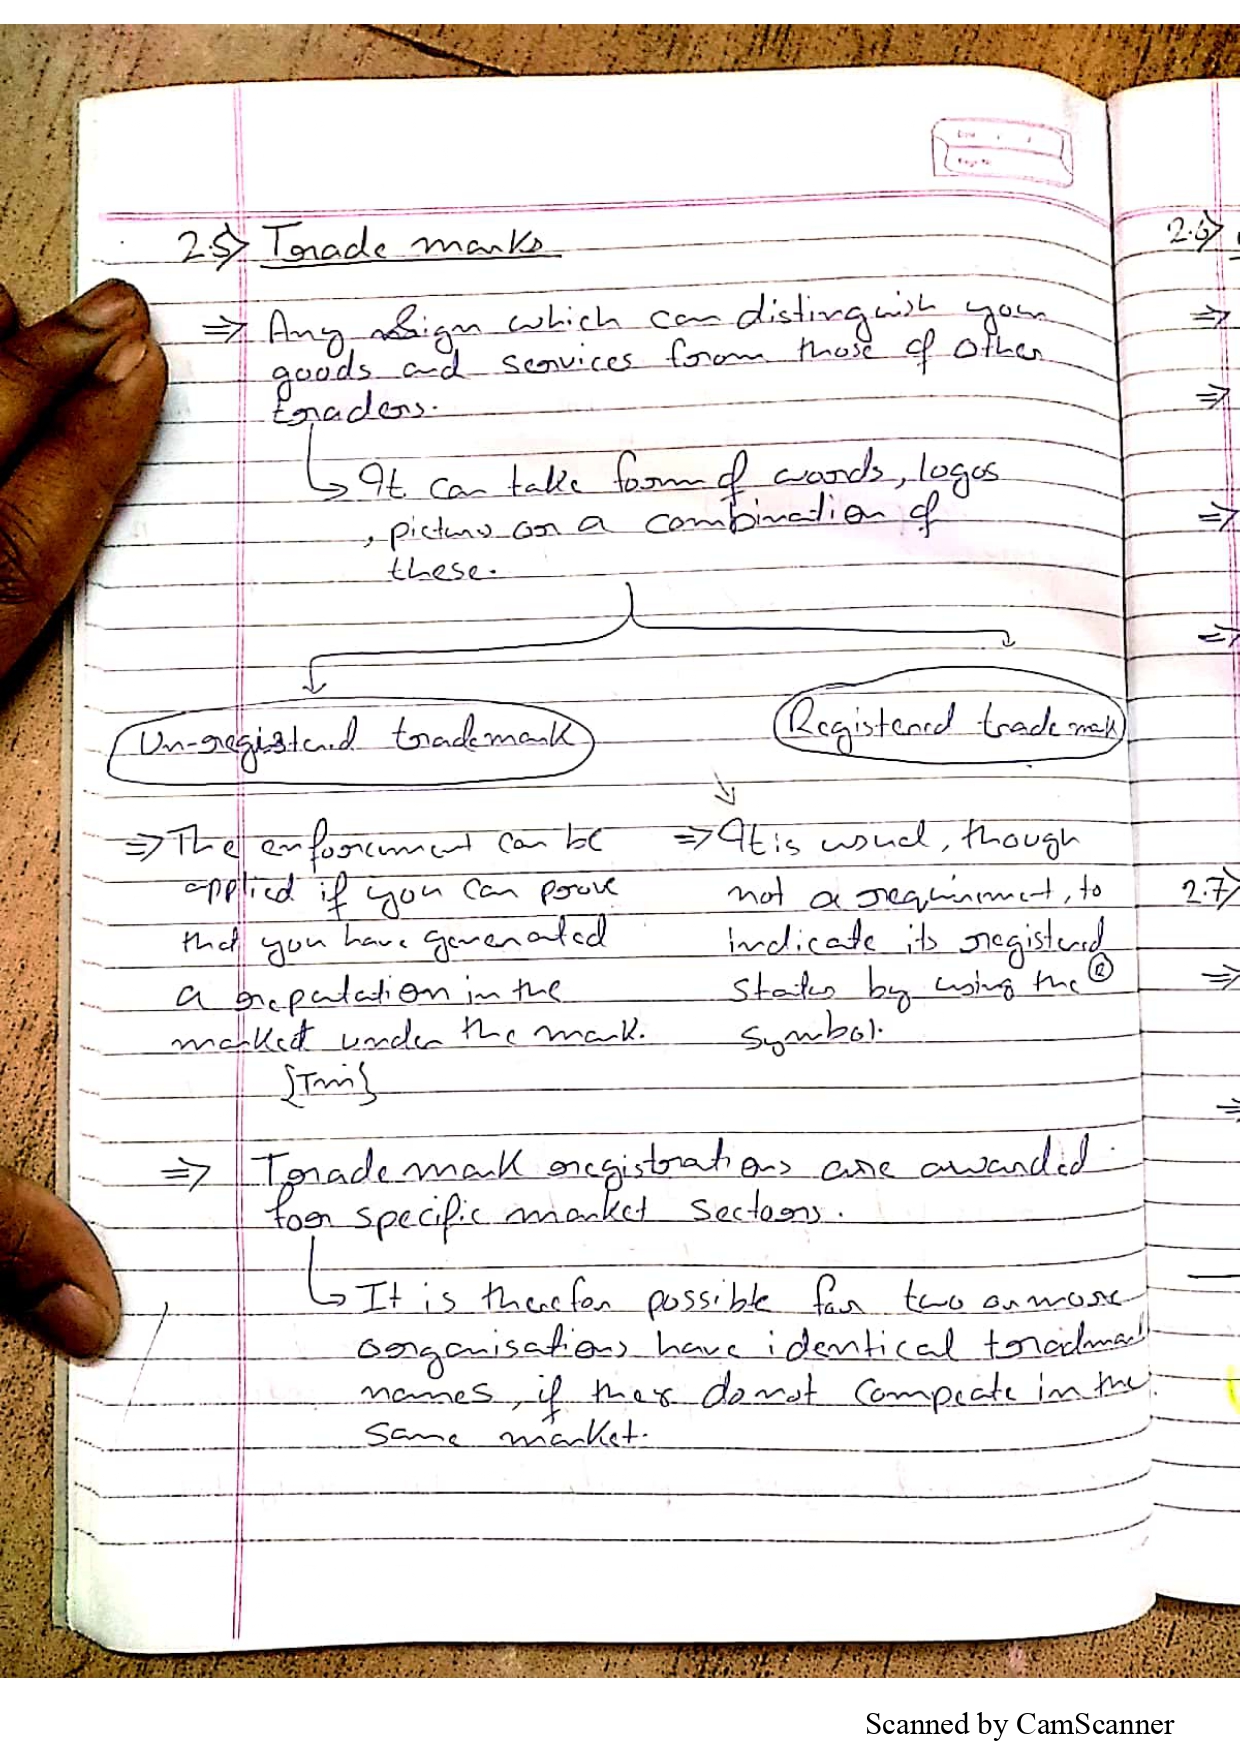 2.5> Trade marks
⇒ Any sign which can distinguish your
goods and services from those of other
traders.
↳ It can take form of words, logos
, picture or a combination of
these.
Un-registered trademark
Registered trademark
⇒ The enforcement can be
applied if you can prove
that you have generated
a reputation in the
market under the mark.
{Tm}
⇒ It is usual, though
not a requirement, to
indicate its registered
status by using the ®
symbol.
⇒ Trade mark registrations are awarded
for specific market sectors.
↳ It is therefor possible for two or more
organisations have identical trademark
names, if they do not compeate in the
same market.
2.6>
⇒
⇒
⇒
⇒
2.7>
⇒
⇒
Scanned by CamScanner